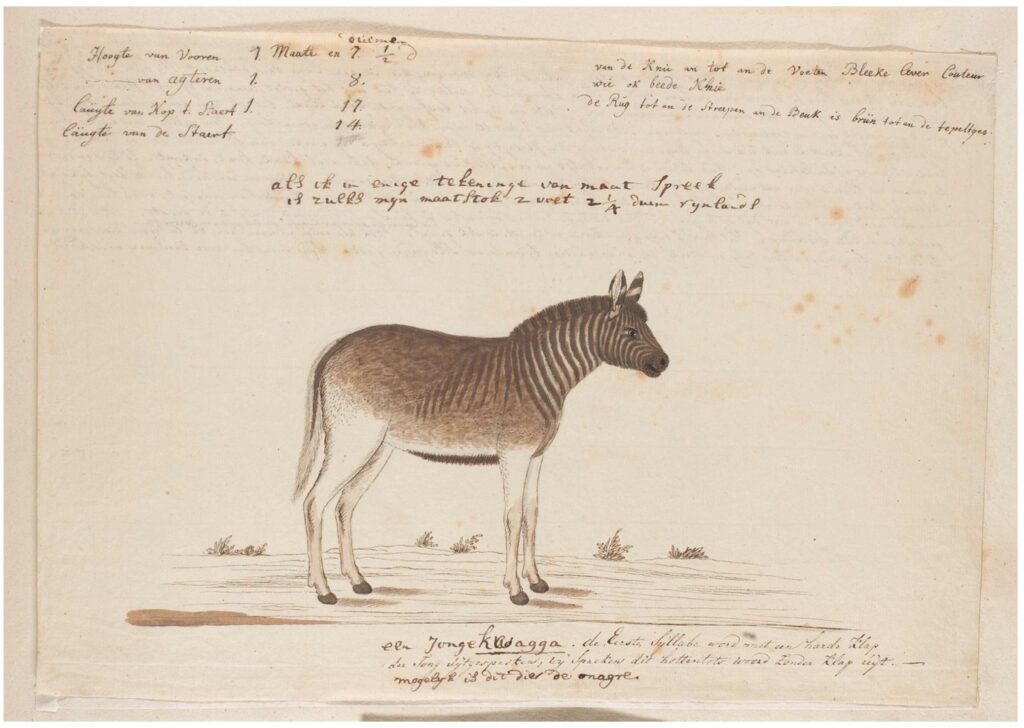 duimen
Hoogte van Vooren 1 Maate en 7. 1/2
van agteren 1. 8.
Läugte van Kop t. Staert 1. 17.
läugte van de Staert 14.
van de Knie an tot an de Voeten Bleeke lever Couleur
wie ok beede Knie
de Rug tot an de Streepen an de Beuk is brün tot an de tepeltges.
als ik in enige tekeninge van maat Spreek
is zulks myn maatstok 2 voet 2 1/4 duim rynlands
een Jonge kwagga. de Eerste Syllabe word met een harde klap
der Tong wy Spreken dit hottentots woord zonder klap uyt. —
mogelyk is dit dier de onagre.